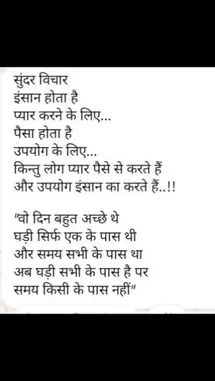 सुंदर विचार
इंसान होता है
प्यार करने के लिए...
पैसा होता है
उपयोग के लिए...
किन्तु लोग प्यार पैसे से करते हैं
और उपयोग इंसान का करते हैं..!!
"वो दिन बहुत अच्छे थे
घड़ी सिर्फ एक के पास थी
और समय सभी के पास था
अब घड़ी सभी के पास है पर
समय किसी के पास नहीं"